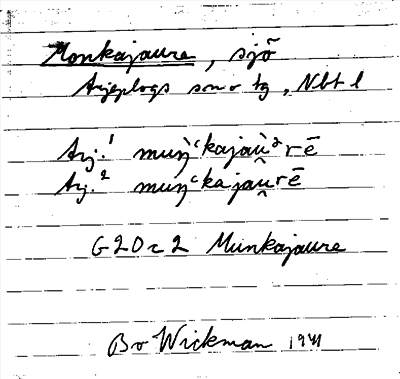 Monkajaure, sjö
Arjeplogs sn o tg, Nbt l
Arj.¹ muŋ̀ʿkajau̯ᵊrē
Arj.² muŋ̀ʿkajau̯rē
G20c2 Munkajaure
Bo Wickman 1941